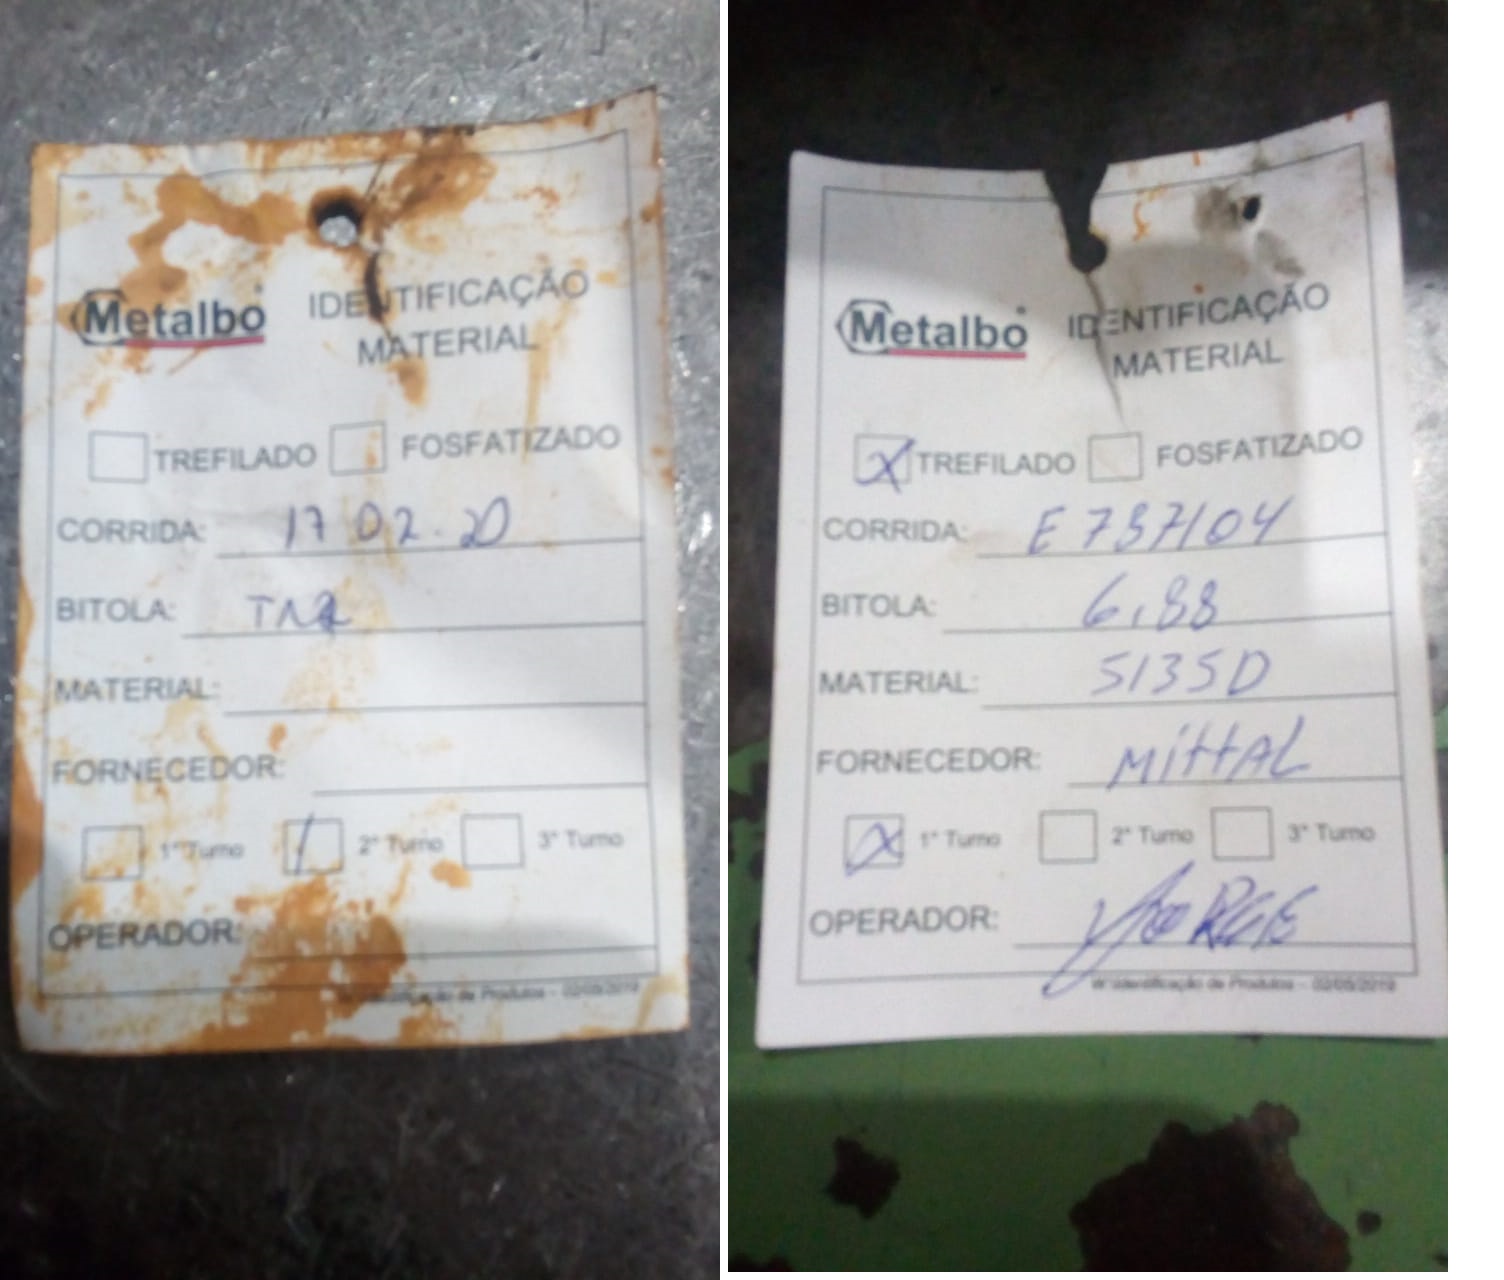 Metalbo
IDENTIFICAÇÃO
MATERIAL
TREFILADO FOSFATIZADO
CORRIDA: 17 02.20
BITOLA:
MATERIAL:
FORNECEDOR:
1° Turno 2° Turno 3° Turno
OPERADOR:
Identificação de Produtos - 02/05/2019
Metalbo
IDENTIFICAÇÃO
MATERIAL
X TREFILADO FOSFATIZADO
CORRIDA: E737104
BITOLA: 6,88
MATERIAL: 5135D
FORNECEDOR: MittAL
X 1° Turno 2° Turno 3° Turno
OPERADOR:
Identificação de Produtos - 02/05/2019